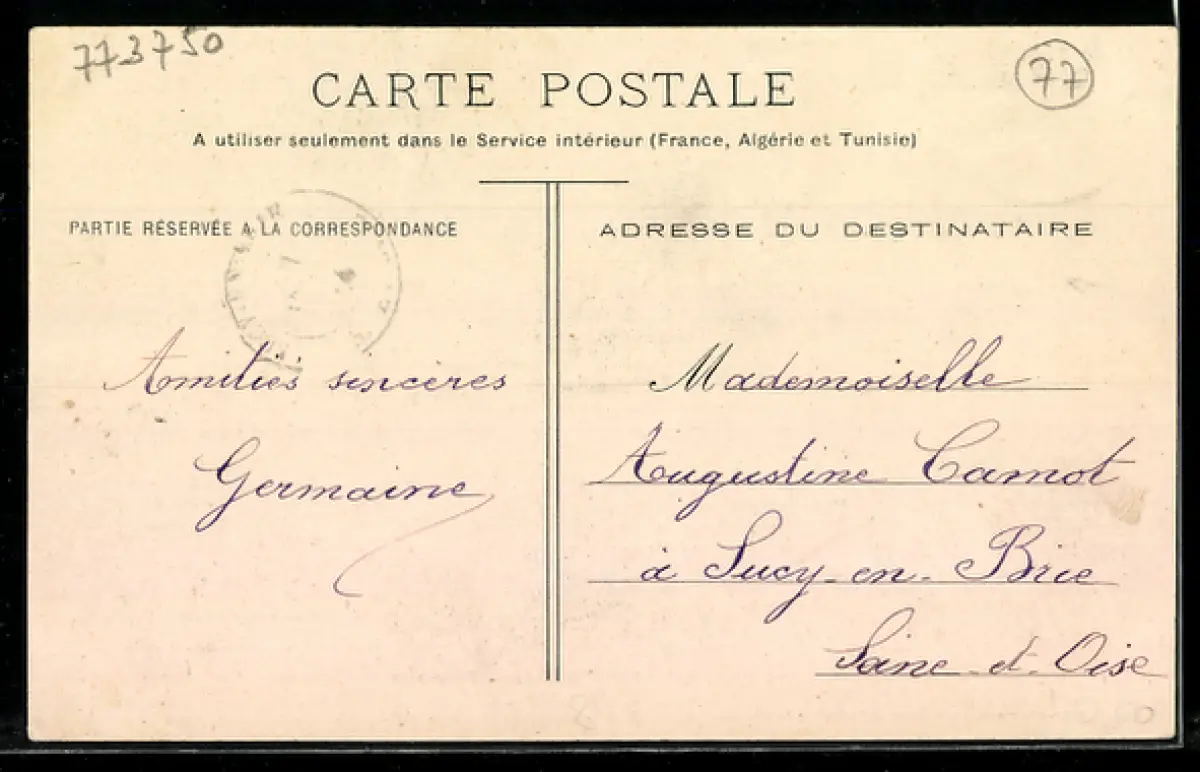 773750
77
CARTE POSTALE
A utiliser seulement dans le Service intérieur (France, Algérie et Tunisie)
PARTIE RÉSERVÉE A LA CORRESPONDANCE
ADRESSE DU DESTINATAIRE
Amitiés sincères
Germaine
Mademoiselle
Augustine Camot
à Sucy-en-Brie
Seine-et-Oise